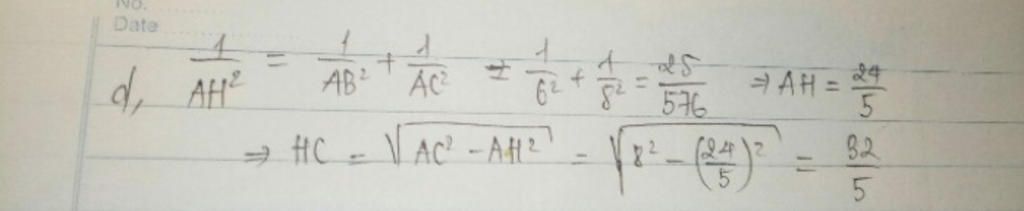 No.
Date
d, 1/AH² = 1/AB² + 1/AC² = 1/6² + 1/8² = 25/576 ⇒ AH = 24/5
⇒ HC = √(AC² - AH²) = √(8² - (24/5)²) = 32/5